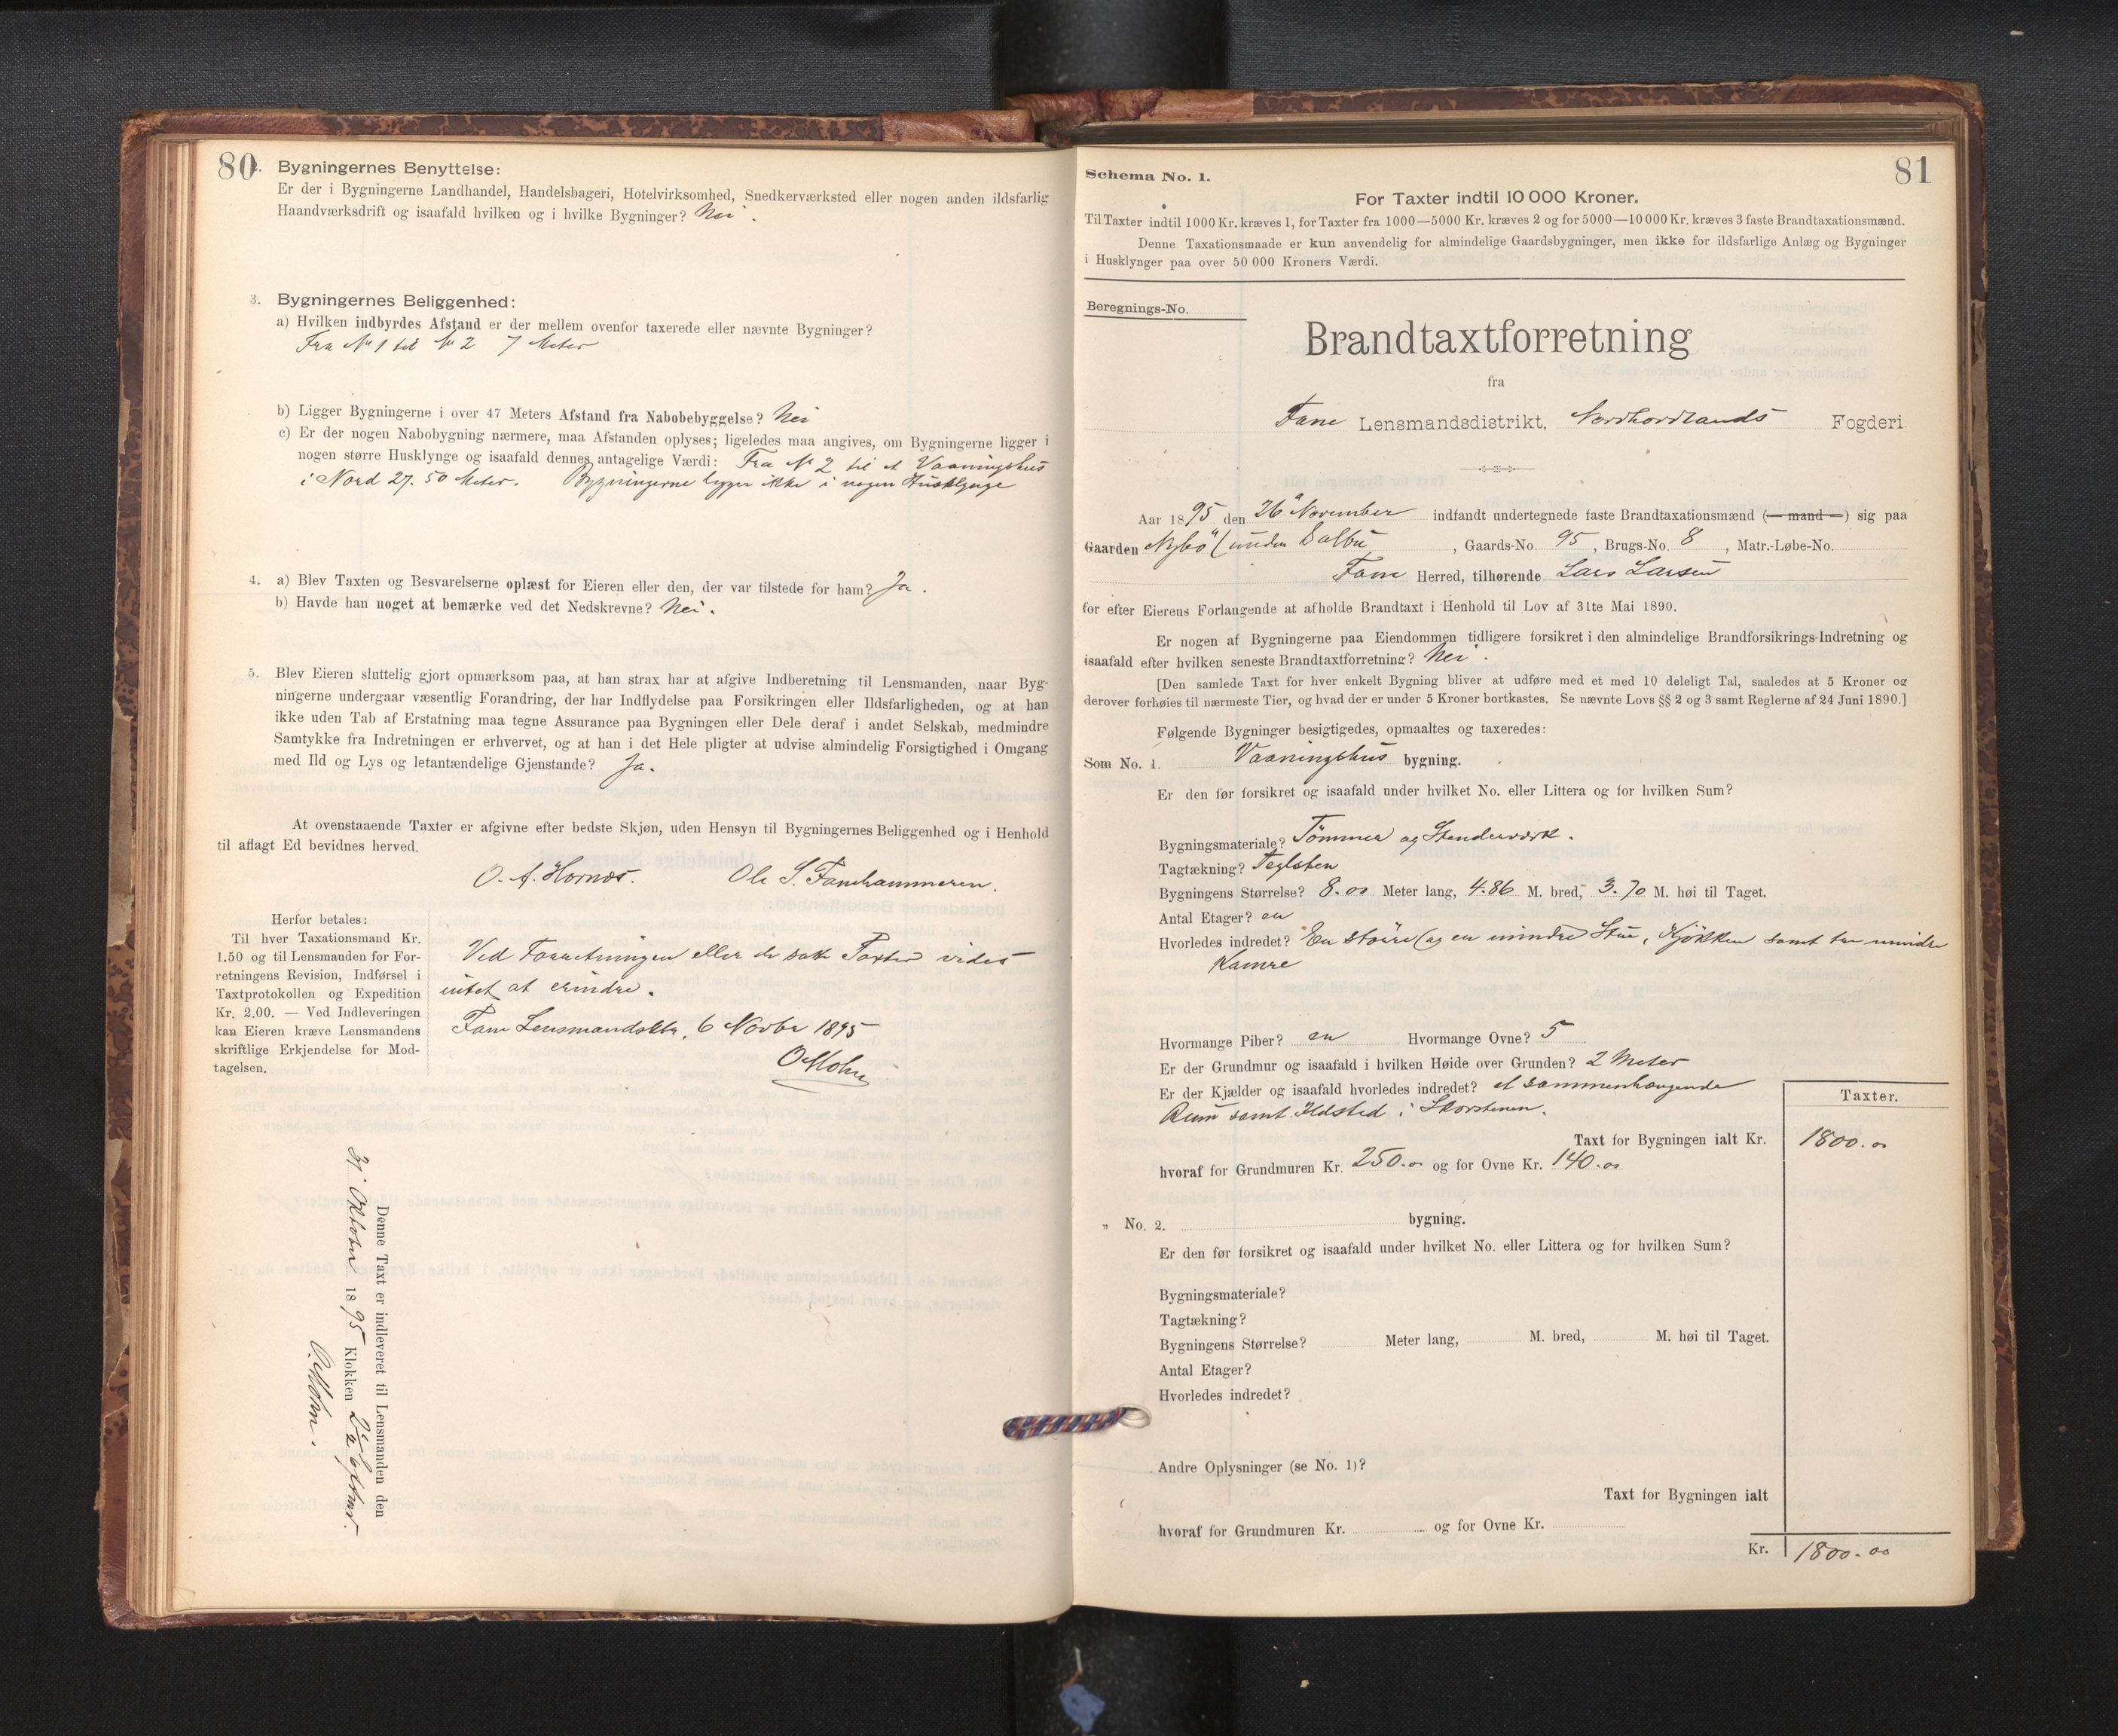 80
2. Bygningernes Benyttelse:
Er der i Bygningerne Landhandel, Handelsbageri, Hotelvirksomhed, Snedkerværksted eller nogen anden ildsfarlig
Haandværksdrift og isaafald hvilken og i hvilke Bygninger? Nei.
3. Bygningernes Beliggenhed:
a) Hvilken indbyrdes Afstand er der mellem ovenfor taxerede eller nævnte Bygninger?
Fra No 1 til No 2 7 Meter
b) Ligger Bygningerne i over 47 Meters Afstand fra Nabobebyggelse? Nei
c) Er der nogen Nabobygning nærmere, maa Afstanden oplyses; ligeledes maa angives, om Bygningerne ligger i
nogen større Husklynge og isaafald dennes antagelige Værdi: Fra No 2 til et Vaaningshus
i Nord 27.50 Meter. Bygningerne ligger ikke i nogen Husklynge
4. a) Blev Taxten og Besvarelserne oplæst for Eieren eller den, der var tilstede for ham? Ja.
b) Havde han noget at bemærke ved det Nedskrevne? Nei.
5. Blev Eieren sluttelig gjort opmærksom paa, at han strax har at afgive Indberetning til Lensmanden, naar Byg-
ningerne undergaar væsentlig Forandring, der har Indflydelse paa Forsikringen eller Ildsfarligheden, og at han
ikke uden Tab af Erstatning maa tegne Assurance paa Bygningen eller Dele deraf i andet Selskab, medmindre
Samtykke fra Indretningen er erhvervet, og at han i det Hele pligter at udvise almindelig Forsigtighed i Omgang
med Ild og Lys og letantændelige Gjenstande? Ja.
At ovenstaaende Taxter er afgivne efter bedste Skjøn, uden Hensyn til Bygningernes Beliggenhed og i Henhold
til aflagt Ed bevidnes herved.
O. A. Hornæs. Ole S. Fanehammeren.
Herfor betales:
Til hver Taxationsmand Kr.
1.50 og til Lensmanden for For-
retningens Revision, Indførsel i
Taxtprotokollen og Expedition
Kr. 2.00. — Ved Indleveringen
kan Eieren kræve Lensmandens
skriftlige Erkjendelse for Mod-
tagelsen.
Ved Forretningen eller de satte Taxter vides
intet at erindre.
Fane Lensmandsktr. 6 Novbr 1895
O Mohn
Denne Taxt er indleveret til Lensmanden den
31 Oktober 1895 Klokken 2 Eftmd.
O. Mohn.
81
Schema No. 1.
For Taxter indtil 10 000 Kroner.
Til Taxter indtil 1000 Kr. kræves 1, for Taxter fra 1000—5000 Kr. kræves 2 og for 5000—10 000 Kr. kræves 3 faste Brandtaxationsmænd.
Denne Taxationsmaade er kun anvendelig for almindelige Gaardsbygninger, men ikke for ildsfarlige Anlæg og Bygninger
i Husklynger paa over 50 000 Kroners Værdi.
Beregnings-No.
Brandtaxtforretning
fra
Fane Lensmandsdistrikt, Nordhordlands Fogderi.
Aar 1895 den 26 November indfandt undertegnede faste Brandtaxationsmænd (— mand —) sig paa
Gaarden Nybö (under Dalbu , Gaards-No. 95, Brugs-No. 8, Matr.-Løbe-No.
Fane Herred, tilhørende Lars Larsen
for efter Eierens Forlangende at afholde Brandtaxt i Henhold til Lov af 31te Mai 1890.
Er nogen af Bygningerne paa Eiendommen tidligere forsikret i den almindelige Brandforsikrings-Indretning og
isaafald efter hvilken seneste Brandtaxtforretning? Nei.
[Den samlede Taxt for hver enkelt Bygning bliver at udføre med et med 10 deleligt Tal, saaledes at 5 Kroner og
derover forhøies til nærmeste Tier, og hvad der er under 5 Kroner bortkastes. Se nævnte Lovs §§ 2 og 3 samt Reglerne af 24 Juni 1890.]
Følgende Bygninger besigtigedes, opmaaltes og taxeredes:
Som No. 1. Vaaningshus bygning.
Er den før forsikret og isaafald under hvilket No. eller Littera og for hvilken Sum?
Bygningsmateriale? Tömmer og Stenderværk.
Tagtækning? Teglsten
Bygningens Størrelse? 8.00 Meter lang, 4.86 M. bred, 3.70 M. høi til Taget.
Antal Etager? en
Hvorledes indredet? En större (og en mindre) Stue, Kjökken samt tre mindre
Kamre
Hvormange Piber? en Hvormange Ovne? 5
Er der Grundmur og isaafald i hvilken Høide over Grunden? 2 Meter
Er der Kjælder og isaafald hvorledes indredet? et sammenhængende
Rum samt Ildsted i Skorstenen.
Taxter.
Taxt for Bygningen ialt Kr. 1800.00
hvoraf for Grundmuren Kr. 250.00 og for Ovne Kr. 140.00
" No. 2. bygning.
Er den før forsikret og isaafald under hvilket No. eller Littera og for hvilken Sum?
Bygningsmateriale?
Tagtækning?
Bygningens Størrelse? Meter lang, M. bred, M. høi til Taget.
Antal Etager?
Hvorledes indredet?
Andre Oplysninger (se No. 1)?
Taxt for Bygningen ialt
hvoraf for Grundmuren Kr. og for Ovne Kr.
Kr. 1800.00